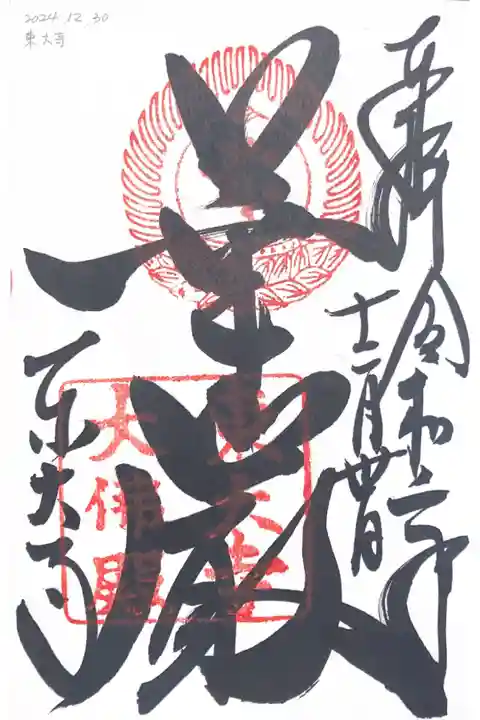 2024. 12. 30
東大寺
奉拝 令和六年
十二月卅日
華嚴
東大寺
東大寺
大佛殿